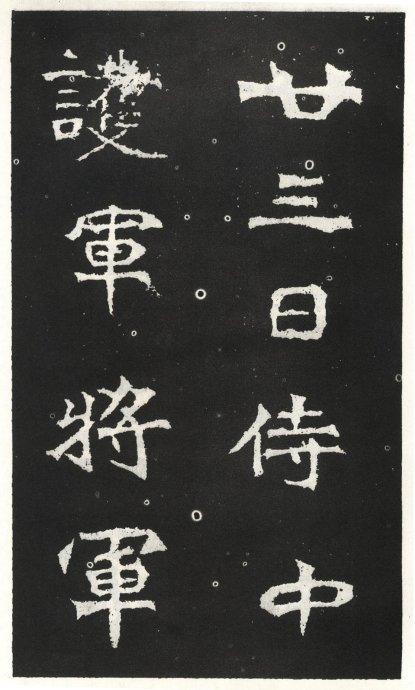 廿三日侍中
護軍將軍